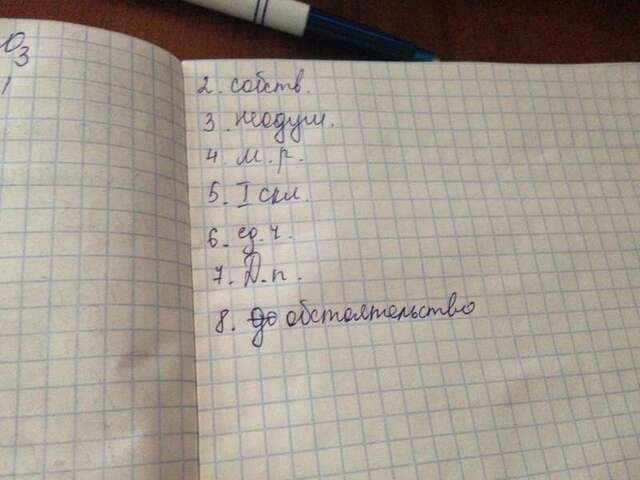 O3
2. собств.
3. неодуш.
4. м. р.
5. I скл.
6. ед. ч.
7. Д. п.
8. до обстоятельство